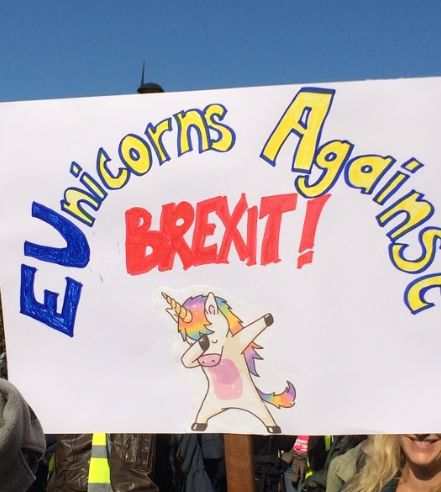 EUnicorns Against
BREXIT!